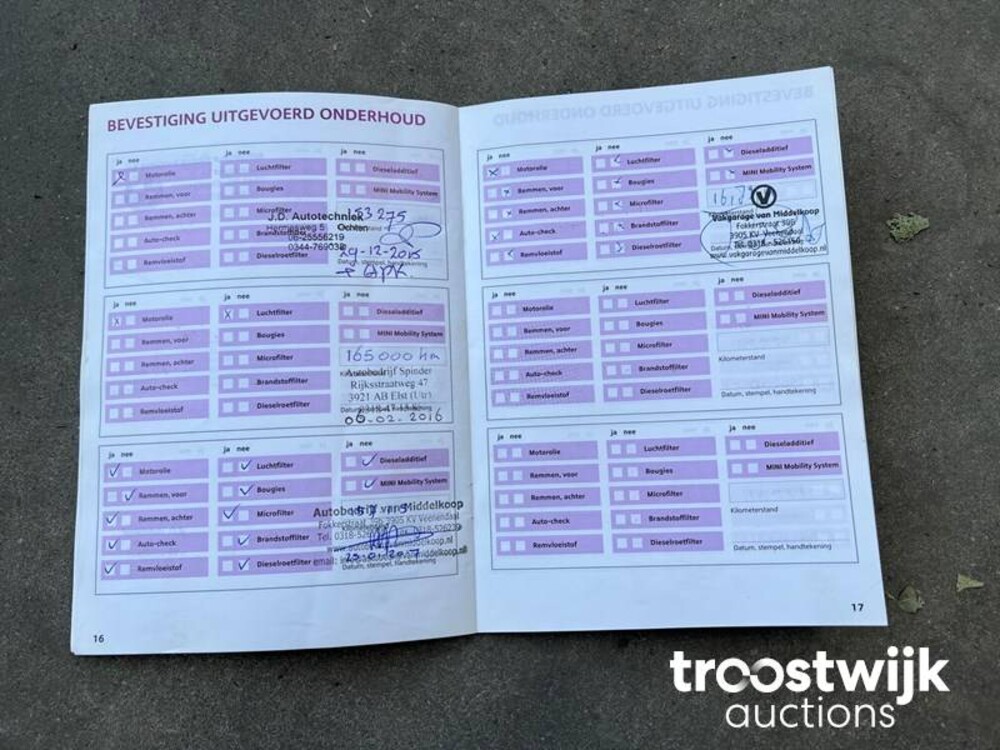 BEVESTIGING UITGEVOERD ONDERHOUD
ja nee
ja nee
ja nee
Motorolie
Luchtfilter
Dieseladditief
Remmen, voor
Bougies
MINI Mobility System
Remmen, achter
Microfilter
153275
J.D. Autotechniek
Hermesweg 5 Ochten
Auto-check
06-25556219
0344-769038
29-12-2015
Remvloeistof
Dieselroetfilter
Datum, stempel, handtekening
+ APK
ja nee
ja nee
ja nee
X Motorolie
X Luchtfilter
Dieseladditief
Remmen, voor
Bougies
MINI Mobility System
Remmen, achter
Microfilter
165000 km
Autobedrijf Spinder
Auto-check
Brandstoffilter
Rijksstraatweg 47
3921 AB Elst (Utr)
Remvloeistof
Dieselroetfilter
06-02-2016
ja nee
ja nee
ja nee
Motorolie
Luchtfilter
Dieseladditief
Remmen, voor
Bougies
MINI Mobility System
Remmen, achter
Microfilter
Autobedrijf van Middelkoop
Fokkerstraat 39b 3905 KV Veenendaal
Auto-check
Brandstoffilter
Tel.
Remvloeistof
Dieselroetfilter
email:
Datum, stempel, handtekening
16
ja nee
ja nee
ja nee
Motorolie
Luchtfilter
Dieseladditief
Remmen, voor
Bougies
MINI Mobility System
Remmen, achter
Microfilter
V
Vakgarage van Middelkoop
Auto-check
Brandstoffilter
Fokkerstraat 39b
3905 KV Veenendaal
Remvloeistof
Dieselroetfilter
Tel. 0318 - 526156
www.vakgaragevanmiddelkoop.nl
ja nee
ja nee
ja nee
Motorolie
Luchtfilter
Dieseladditief
Remmen, voor
Bougies
MINI Mobility System
Remmen, achter
Microfilter
Kilometerstand
Auto-check
Brandstoffilter
Remvloeistof
Dieselroetfilter
Datum, stempel, handtekening
ja nee
ja nee
ja nee
Motorolie
Luchtfilter
Dieseladditief
Remmen, voor
Bougies
MINI Mobility System
Remmen, achter
Microfilter
Kilometerstand
Auto-check
Brandstoffilter
Remvloeistof
Dieselroetfilter
Datum, stempel, handtekening
17
troostwijk
auctions